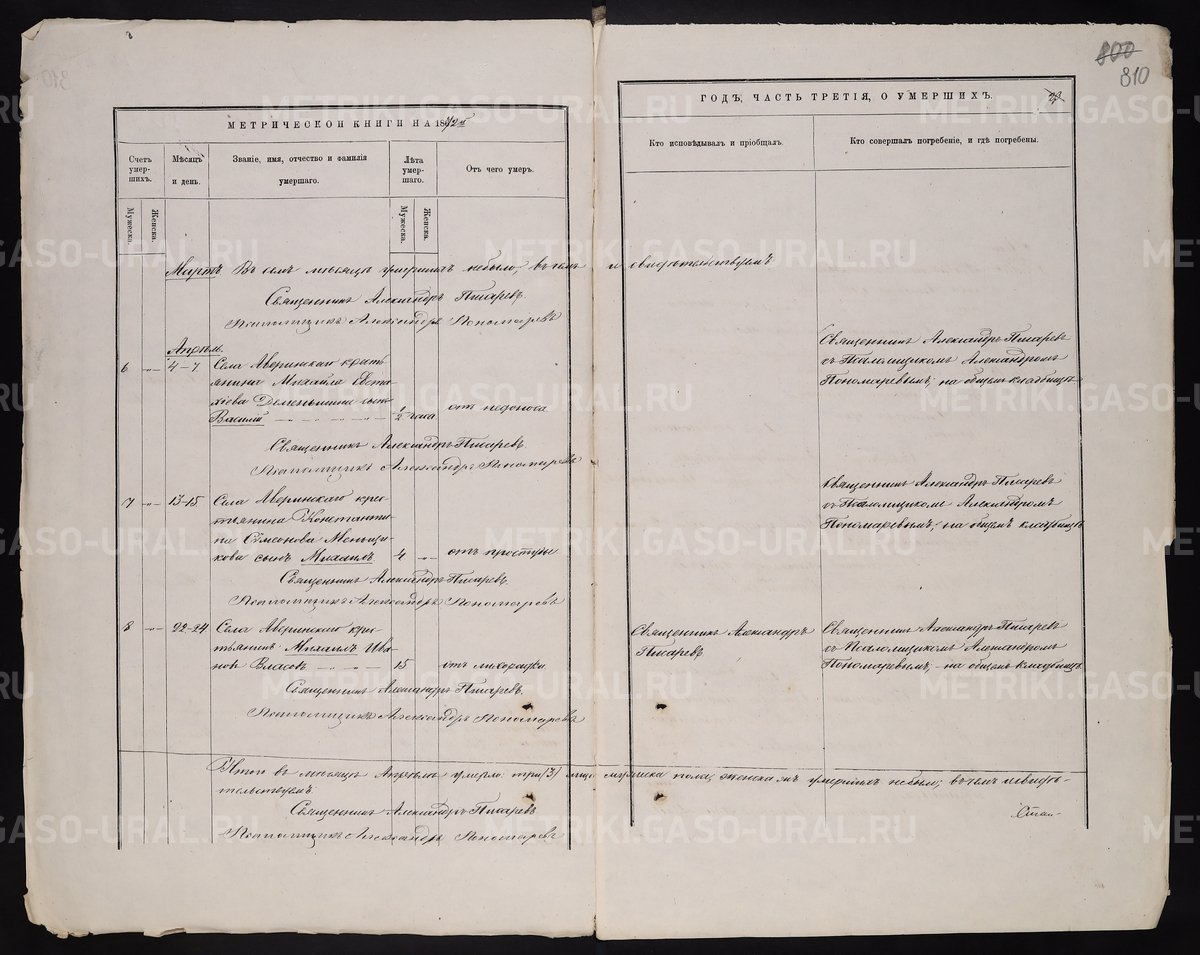 800
810
МЕТРИЧЕСКОЙ КНИГИ НА 1872й
ГОДЪ, ЧАСТЬ ТРЕТІЯ, О УМЕРШИХЪ.
Счетъ умер-шихъ.
Мужеска.
Женска.
Мѣсяцъ и день.
Званіе, имя, отчество и фамилія умершаго.
Лѣта умер-шаго.
Мужеска.
Женска.
Отъ чего умеръ.
Кто исповѣдывалъ и пріобщалъ.
Кто совершалъ погребеніе, и гдѣ погребены.
Мартъ Въ семъ мѣсяцѣ умершихъ небыло въ чемъ и свидѣтельствуемъ
Священникъ Александръ Писаревъ.
Псаломщикъ Александръ Пономаревъ
Апрѣль.
6 „ 4–7 Села Аверинскаго кресть-
янина Михаила Евста-
хіева сынъ
Василій ½ часа отъ недоноса
Священникъ Александръ Писаревъ
съ Псаломщикомъ Александромъ
Пономаревымъ, на общемъ кладбищѣ
Священникъ Александръ Писаревъ
Псаломщикъ Александръ Пономаревъ
7 „ 13–15 Села Аверинскаго крес-
тьянина Константи-
на Симеонова
сынъ Михаилъ 4 отъ простуды
Священникъ Александръ Писаревъ
съ Псаломщикомъ Александромъ
Пономаревымъ, на общемъ кладбищѣ
Священникъ Александръ Писаревъ.
Псаломщикъ Александръ Пономаревъ
8 „ 22–24 Села Аверинскаго крес-
тьянинъ Михаилъ Ива-
новъ Власовъ 15 отъ лихорадки
Священникъ Александръ
Писаревъ
Священникъ Александръ Писаревъ
съ Псаломщикомъ Александромъ
Пономаревымъ, на общемъ кладбищѣ
Священникъ Александръ Писаревъ.
Псаломщикъ Александръ Пономаревъ
Итого въ мѣсяцѣ Апрѣлѣ умерло три (3) лица мужеска пола, женска же умершихъ небыло; въ чемъ и свидѣ-
тельствуемъ.
Священникъ Александръ Писаревъ
Псаломщикъ Александръ Пономаревъ
METRIKI.GASO-URAL.RU